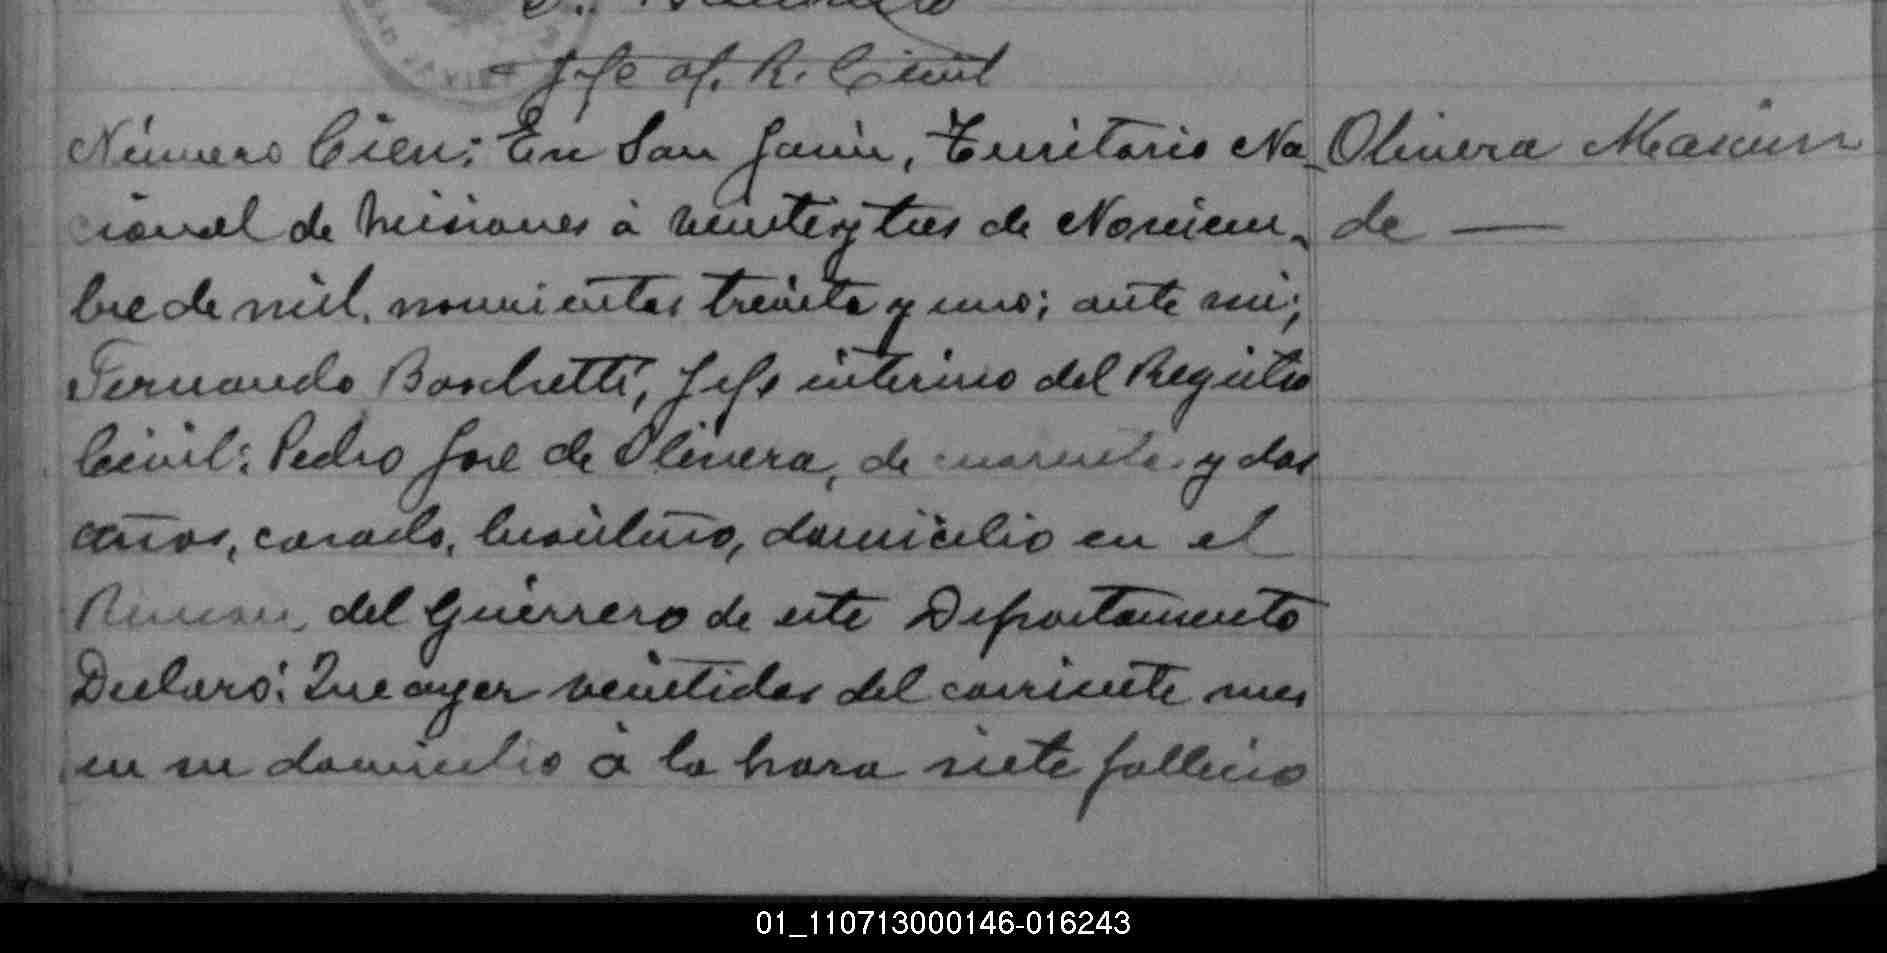 Jefe of. R. Civil
Número Cien: En San Javier, Territorio Na_
cional de Misiones à veintiytres de Noviem_
bre de mil novecientos treinta y uno; ante mi;
Fernando Boschetti, Jefe interino del Registro
Civil: Pedro José de Olivera, de cuarenta y dos
años, casado, brasileño, domicilio en el
Rincon del Guerrero de este Departamento
Declaró: Que ayer veintidos del corriente mes
en su domicilio à la hora siete falleció
Olivera
de —
01_110713000146-016243